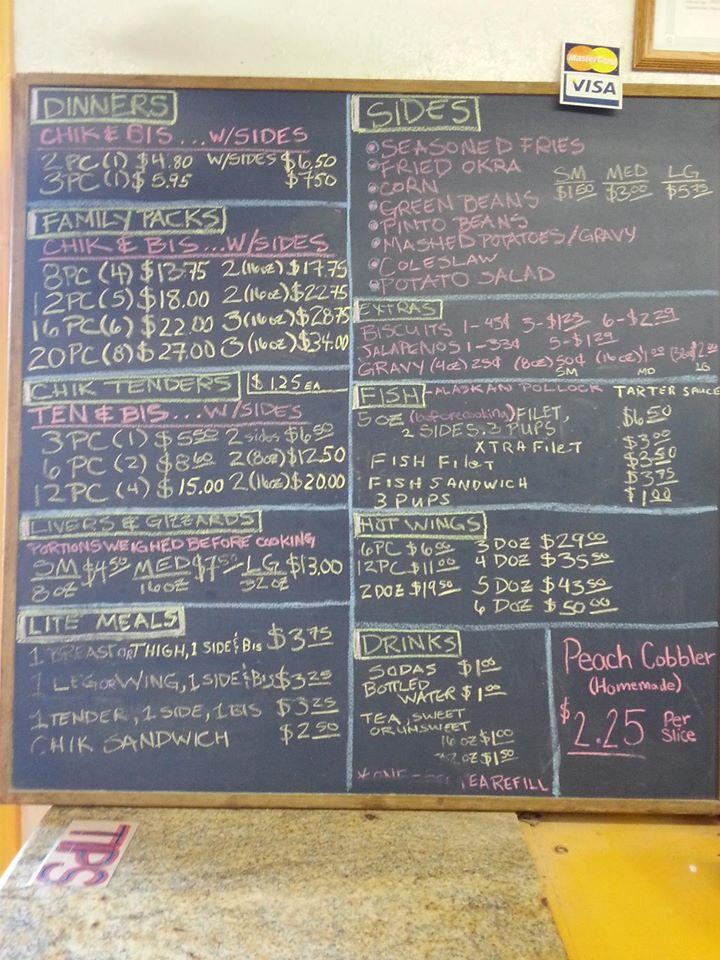 MasterCard
VISA
DINNERS
CHIK & BIS...W/SIDES
2 PC (1) $4.80 W/SIDES $6.50
3 PC (1) $5.95 $7.50
FAMILY PACKS
CHIK & BIS...W/SIDES
8PC (4) $13.75 2 (16oz) $17.75
12PC (5) $18.00 2 (16oz) $22.75
16PC (6) $22.00 3 (16oz) $28.75
20PC (8) $27.00 3 (16oz) $34.00
CHIK TENDERS $1.25 EA
TEN & BIS...W/SIDES
3 PC (1) $5.50 2 sides $6.50
6 PC (2) $8.60 2 (8oz) $12.50
12 PC (4) $15.00 2 (16oz) $20.00
LIVERS & GIZZARDS
PORTIONS WEIGHED BEFORE COOKING
SM $4.50 MED $7.50 LG $13.00
8 OZ 16 OZ 32 OZ
LITE MEALS
1 BREAST OR THIGH, 1 SIDE & BIS $3.75
1 LEG OR WING, 1 SIDE & BIS $3.25
1 TENDER, 1 SIDE, 1 BIS $3.25
CHIK SANDWICH $2.50
SIDES
SEASONED FRIES
FRIED OKRA
CORN
GREEN BEANS
PINTO BEANS
MASHED POTATOES/GRAVY
COLESLAW
POTATO SALAD
SM MED LG
$1.50 $3.00 $5.75
EXTRAS
BISCUITS 1-45¢ 3-$1.25 6-$2.29
JALAPENOS 1-33¢ 5-$1.29
GRAVY (4oz) 25¢ (8oz) 50¢ (16oz) 1.00 (32oz) $2.00
SM MD LG
FISH - ALASKAN POLLOCK TARTER SAUCE
5 OZ (before cooking) FILET, $6.50
2 SIDES, 3 PUPS
XTRA FILET $3.00
FISH FILET $3.50
FISH SANDWICH $3.75
3 PUPS $1.00
HOT WINGS
6PC $6.00 3 DOZ $29.00
12PC $11.00 4 DOZ $35.50
2 DOZ $19.50 5 DOZ $43.50
6 DOZ $50.00
DRINKS
SODAS $1.00
BOTTLED
WATER $1.00
TEA, SWEET
OR UNSWEET
16 OZ $1.00
32 OZ $1.50
*ONE TEA REFILL
Peach Cobbler
(Homemade)
$2.25 Per
Slice
TIPS